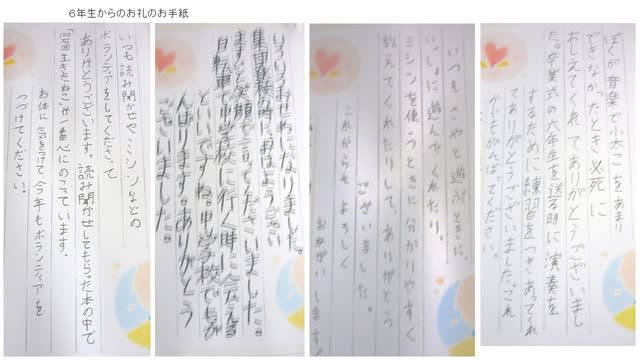 6年生からのお礼のお手紙
いつも読み聞かせや、ミシンなどの
ボランティアをしてくださって
ありがとうございます。読み聞かせしてもらった本の中で
「100万回生きたねこ」が一番心にのこっています。
お体に気をつけて今年もボランティアを
つづけてください。
いろいろおせわになりました。
集団登校の時に、おはようござい
ますと笑顔で言ってくださいました。
自転車で中学校に行く時に会える
といいですね。中学校でもが
んばります。ありがとう
ございました。
いつもさやと遊ぶときに、
いっしょに遊んでくれたり、
ミシンを使うときに分かりやすく
教えてくれたりして、ありがとう
ございました。
これからもよろしく
おねがいします!
ぼくが音楽で小太こをあまり
できなかったとき必死に
おしえてくれてありがとうございまし
た。卒業式の六年生を送る時に演奏を
するために練習をつきあってくれ
てありがとうございました。これ
からもがんばってください。